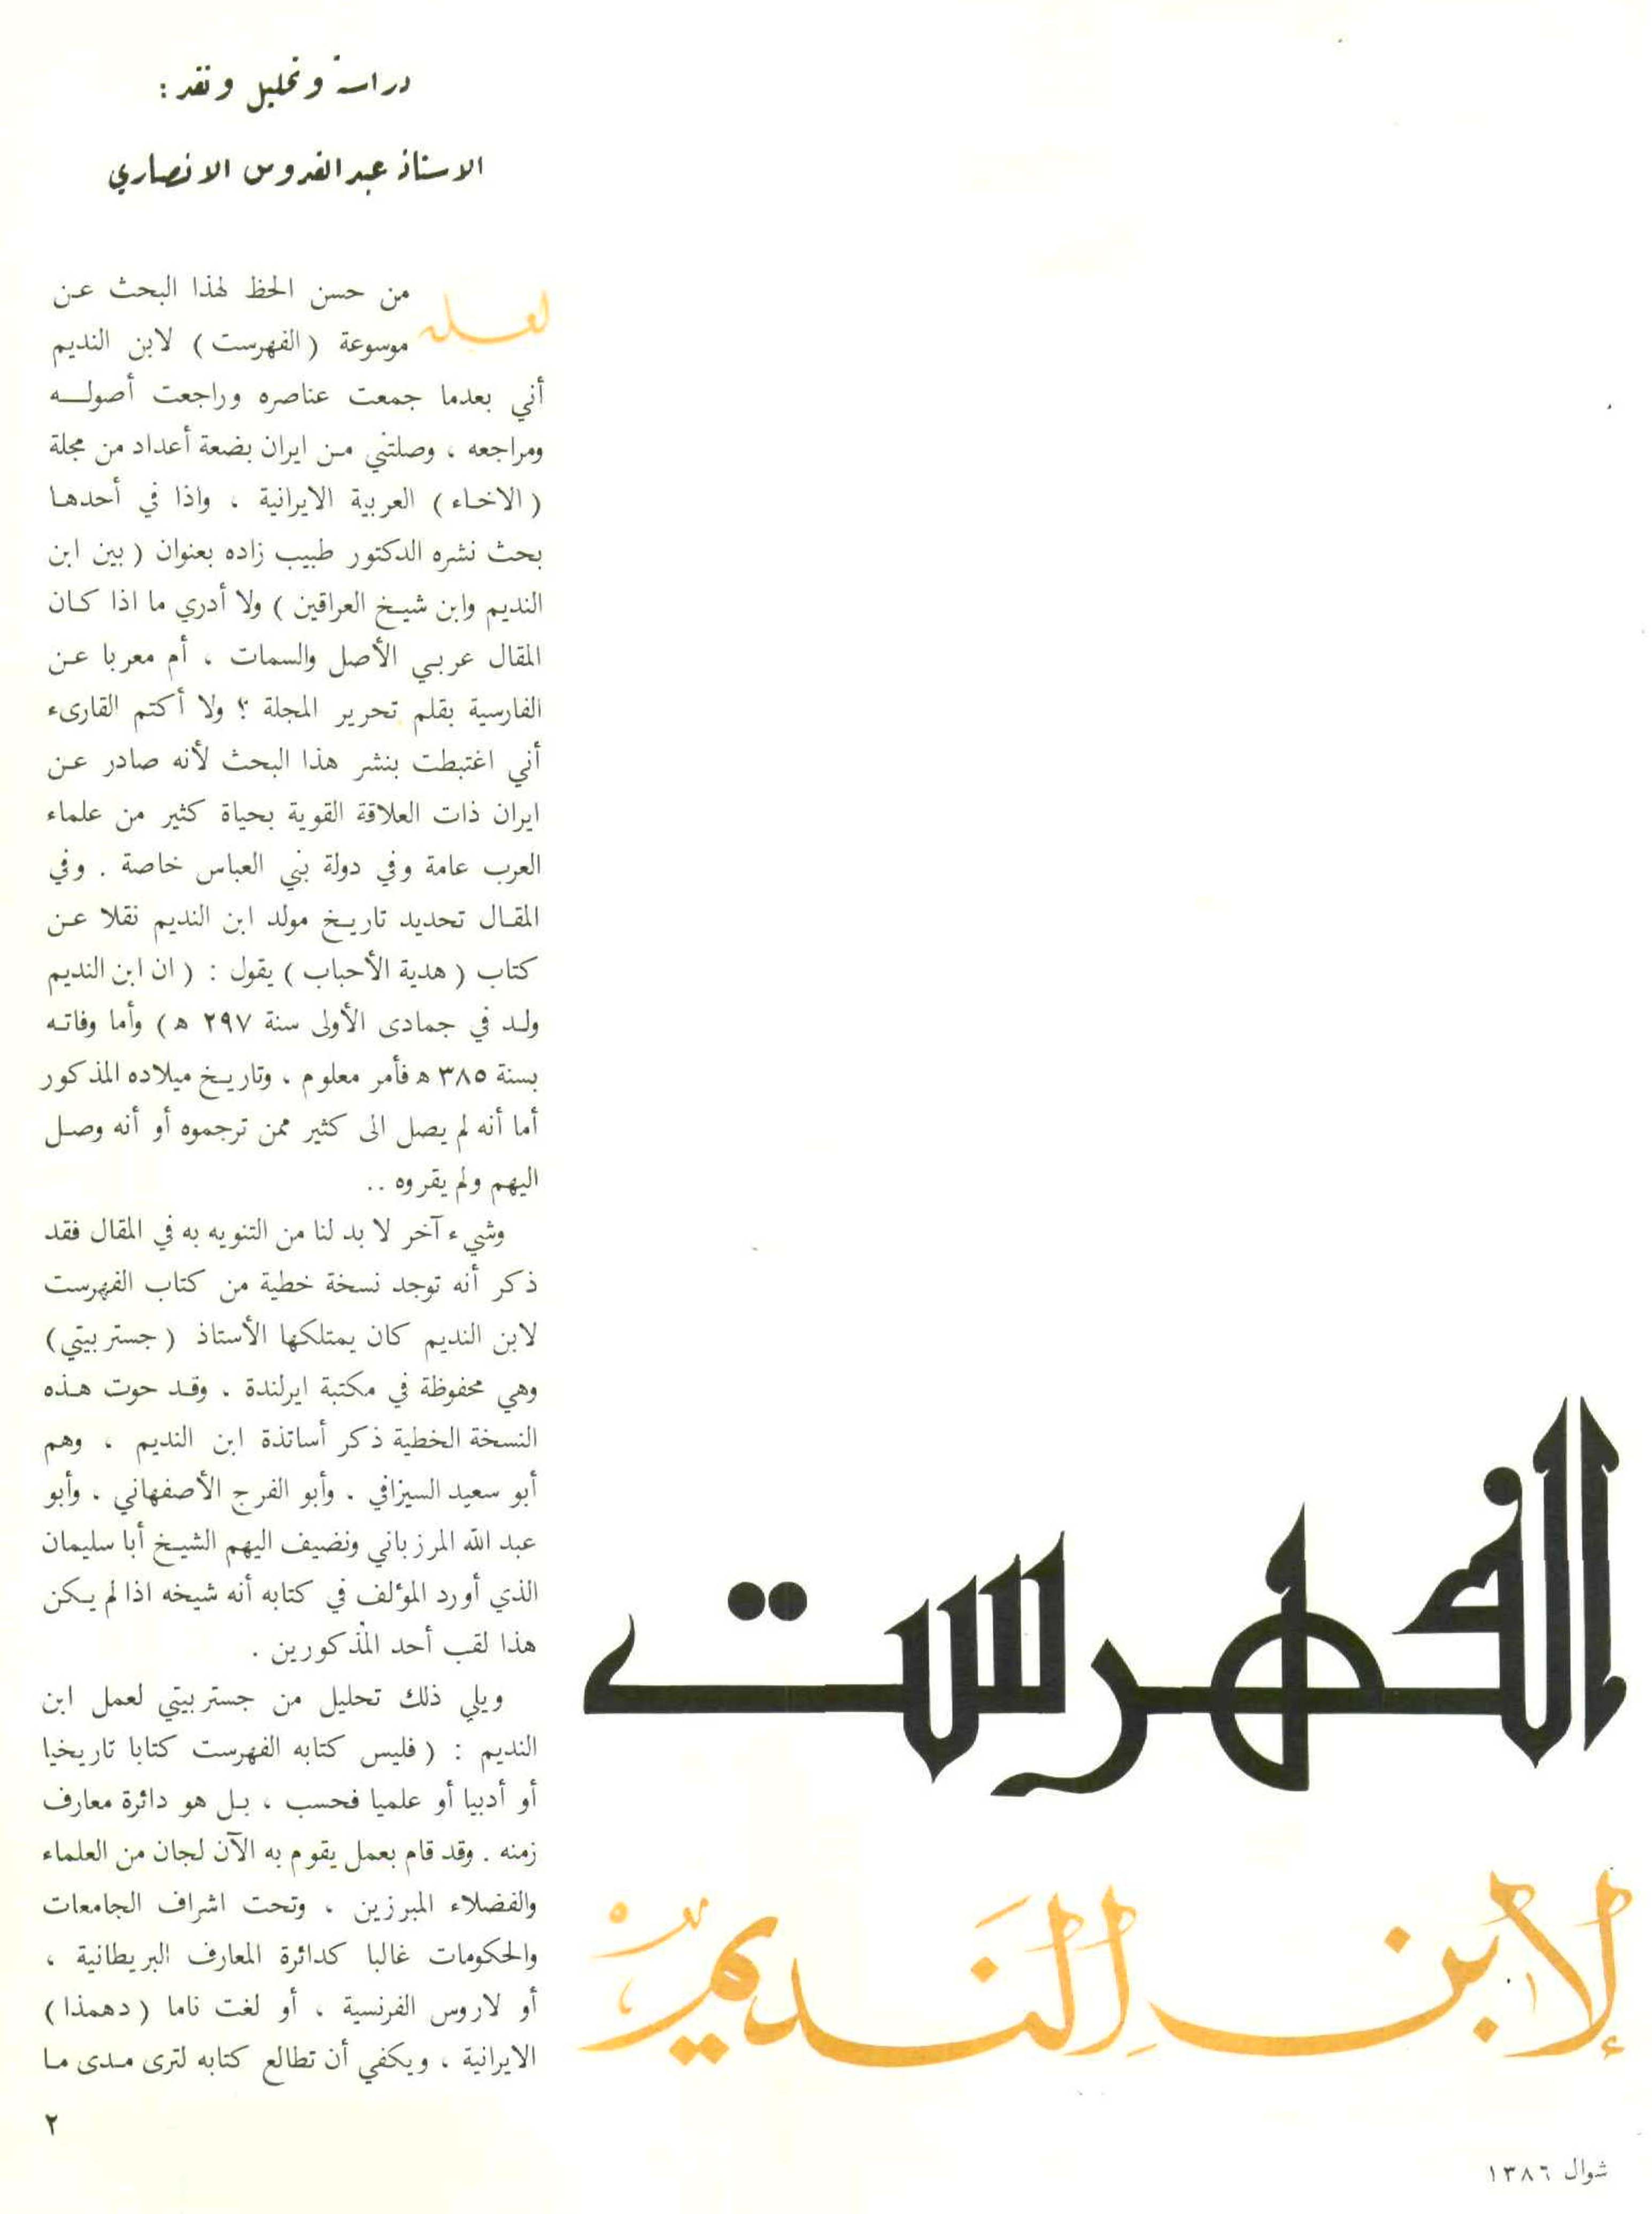 دراسة وتحليل ونقد :
الاستاذ عبد القدوس الانصاري
الفهرست
لابن النديم
لعله من حسن الحظ لهذا البحث عن
موسوعة ( الفهرست ) لابن النديم
أني بعدما جمعت عناصره وراجعت أصوله
ومراجعه ، وصلتني من ايران بضعة أعداد من مجلة
( الاخاء ) العربية الايرانية ، واذا في أحدها
بحث نشره الدكتور طبيب زاده بعنوان ( بين ابن
النديم وابن شيخ العراقين ) ولا أدري ما اذا كان
المقال عربي الأصل والسمات ، أم معربا عن
الفارسية بقلم تحرير المجلة ؟ ولا أكتم القارىء
أني اغتبطت بنشر هذا البحث لأنه صادر عن
ايران ذات العلاقة القوية بحياة كثير من علماء
العرب عامة وفي دولة بني العباس خاصة . وفي
المقال تحديد تاريخ مولد ابن النديم نقلا عن
كتاب ( هدية الأحباب ) يقول : ( ان ابن النديم
ولد في جمادى الأولى سنة ٢٩٧ ه ) وأما وفاته
بسنة ٣٨٥ ه فأمر معلوم ، وتاريخ ميلاده المذكور
أما أنه لم يصل الى كثير ممن ترجموه أو أنه وصل
اليهم ولم يقروه ..
وشيء آخر لا بد لنا من التنويه به في المقال فقد
ذكر أنه توجد نسخة خطية من كتاب الفهرست
لابن النديم كان يمتلكها الأستاذ ( جستر بيتي )
وهي محفوظة في مكتبة ايرلندة . وقد حوت هذه
النسخة الخطية ذكر أساتذة ابن النديم ، وهم
أبو سعيد السيزافي . وأبو الفرج الأصفهاني . وأبو
عبد الله المرزباني ونضيف اليهم الشيخ أبا سليمان
الذي أورد المؤلف في كتابه أنه شيخه اذا لم يكن
هذا لقب أحد المذكورين .
ويلي ذلك تحليل من جستر بيتي لعمل ابن
النديم : ( فليس كتابه الفهرست كتابا تاريخيا
أو أدبيا أو علميا فحسب ، بل هو دائرة معارف
زمنه . وقد قام بعمل يقوم به الآن لجان من العلماء
والفضلاء المبرزين ، وتحت اشراف الجامعات
والحكومات غالبا كدائرة المعارف البريطانية ،
أو لاروس الفرنسية ، أو لغت ناما ( دهمذا )
الايرانية ، ويكفي أن تطالع كتابه لترى مدى ما
٢
شوال ١٣٨٦